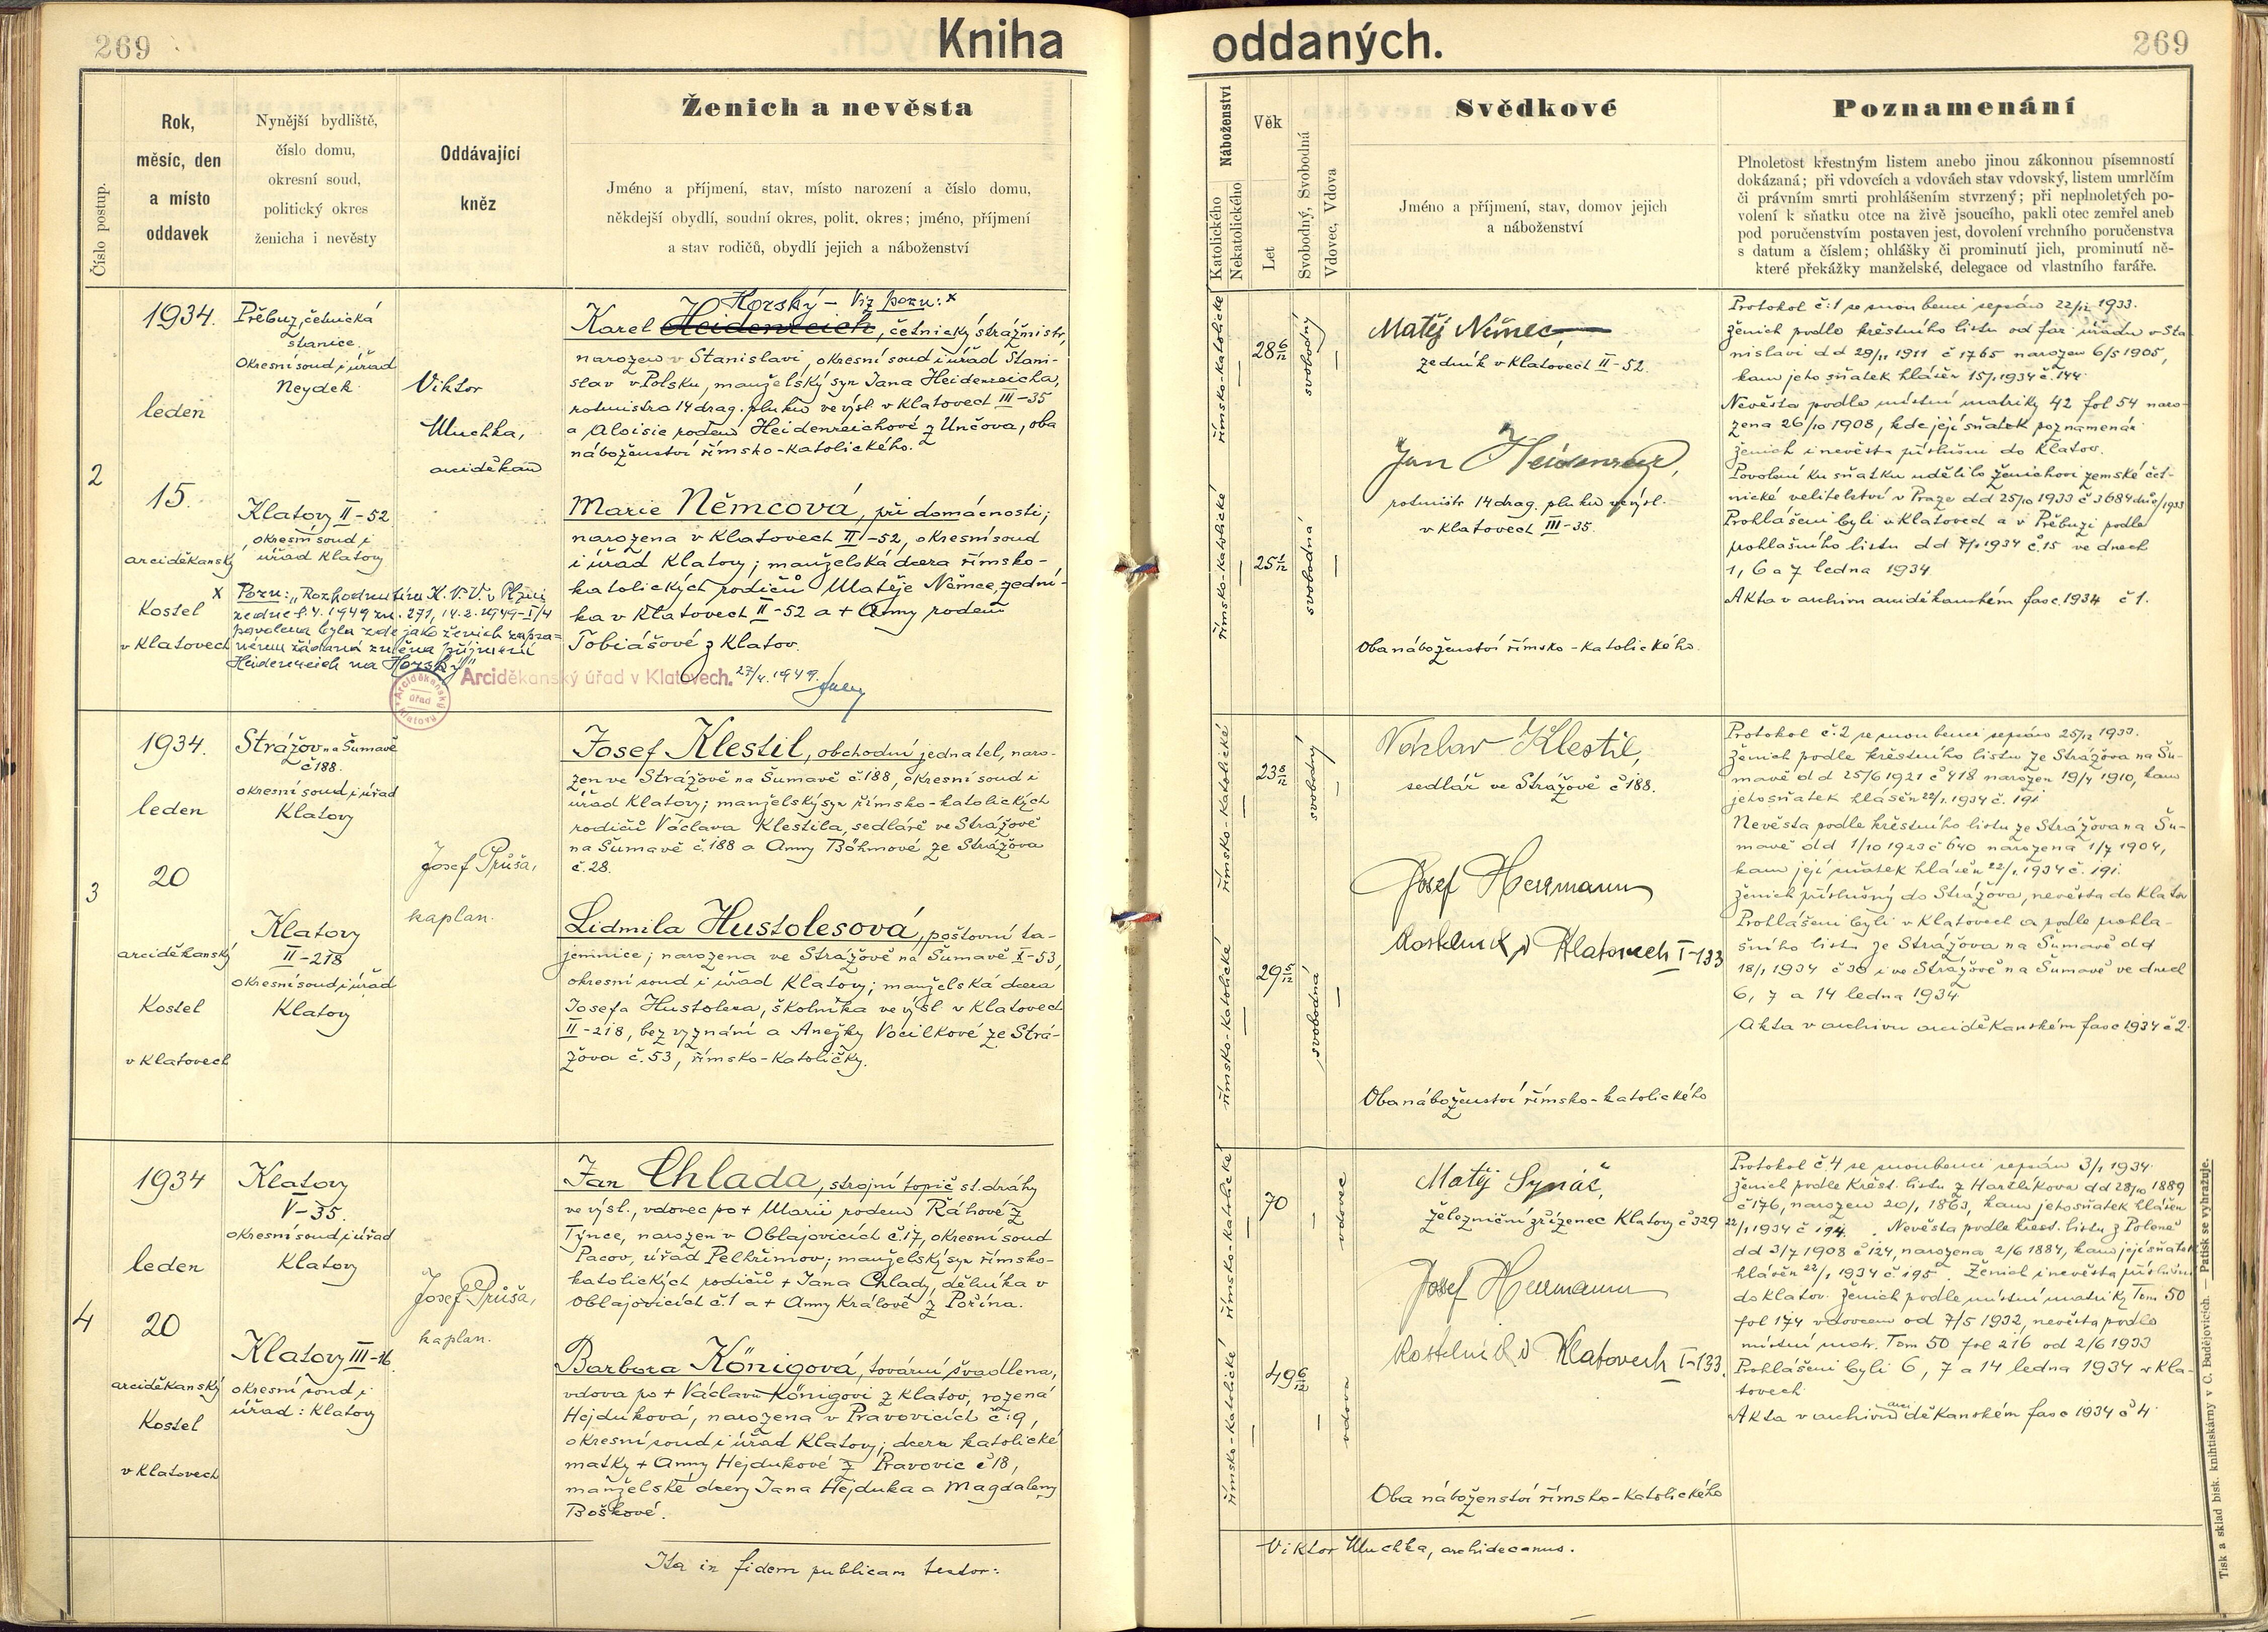 269
Kniha oddaných.
269
Číslo postup.
Rok,
měsíc, den
a místo
oddavek
Nynější bydliště,
číslo domu,
okresní soud,
politický okres
ženicha i nevěsty
Oddávající
kněz
Ženich a nevěsta
Jméno a příjmení, stav, místo narození a číslo domu,
někdejší obydlí, soudní okres, polit. okres; jméno, příjmení
a stav rodičů, obydlí jejich a náboženství
Náboženství
Katolického
Nekatolického
Věk
Let
Svobodný, Svobodná
Vdovec, Vdova
Svědkové
Jméno a příjmení, stav, domov jejich
a náboženství
Poznamenání
Plnoletost křestným listem anebo jinou zákonnou písemností
dokázaná; při vdovcích a vdovách stav vdovský, listem umrlčím
či právním smrti prohlášením stvrzený; při neplnoletých po-
volení k sňatku otce na živě jsoucího, pakli otec zemřel aneb
pod poručenstvím postaven jest, dovolení vrchního poručenstva
s datum a číslem; ohlášky či prominutí jich, prominutí ně-
které překážky manželské, delegace od vlastního faráře.
2
1934.
leden
15.
arciděkanský
Kostel
v Klatovech
Přebuz, četnická
stanice.
Okresní soud i úřad
Neydek
Klatovy II-52
okresní soud i
úřad Klatovy
Viktor
Muchka,
arciděkan
Horský - Viz pozn: x
Karel Heidenreich, četnický strážmistr,
narozen v Stanislavi, okresní soud i úřad Stani-
slav v Polsku, manželský syn Jana Heidenreicha,
rotmistra 14 drag. pluku ve výsl. v Klatovech III-35
a Aloisie rozené Heidenreichové z Unčova, oba
náboženství římsko-katolického.
Marie Němcová, při domácnosti;
narozena v Klatovech II-52, okresní soud
i úřad Klatovy; manželská dcera římsko-
katolických rodičů Matěje Němce, zední-
ka v Klatovech II-52 a + Anny rodem
Tobiášové z Klatov.
x Pozn: "Rozhodnutím K. N. V. v Plzni
ze dne 8.4.1949 zn. 271, 14.2.1949-I/4
povolena byla zde jako ženich zapsa-
nému žádaná změna příjmení
Heidenreich na Horský"
Arciděkanský úřad v Klatovech. 27/4. 1949.
Arciděkanský úřad Klatovy
římsko-katolické
28 6/12
svobodný
římsko-katolické
25 1/12
svobodná
Matěj Němec,
zedník v Klatovech II-52.
Jan Heidenreich,
rotmistr 14 drag. pluku ve výsl.
v Klatovech III-35.
Oba náboženství římsko-katolického.
Protokol č. 1 se snoubenci sepsán 22/12 1933.
Ženich podle křestního listu od far. úřadu v Sta
nislavi dd 29/11 1911 č 1765 narozen 6/5 1905,
kam jeho sňatek hlášen 15/1 1934 č. 144.
Nevěsta podle místní matriky 42 fol 54 naro-
zena 26/10 1908, kde její sňatek poznamenán
Ženich i nevěsta příslušni do Klatov.
Povolení ku sňatku udělilo ženichovi zemské čet-
nické velitelství v Praze dd 25/10 1933 č 3684 /1933
Prohlášeni byli v Klatovech a v Přebuzi podle
prohlašního listu dd 7/1 1934 č. 15 ve dnech
1, 6 a 7 ledna 1934
Akta v archivu arciděkanském fasc. 1934 č 1.
3
1934.
leden
20
arciděkanský
Kostel
v Klatovech
Strážov na Šumavě
č 188.
okresní soud i úřad
Klatovy
Klatovy
II-218
okresní soud i úřad
Klatovy
Josef Průša,
kaplan.
Josef Klestil, obchodní jednatel, naro-
zen ve Strážově na Šumavě č. 188, okresní soud i
úřad Klatovy; manželský syn římsko-katolických
rodičů Václava Klestila, sedláře ve Strážově
na Šumavě č. 188 a Anny Böhmové ze Strážova
č. 28.
Lidmila Hustolesová, poštovní ta-
jemnice; narozena ve Strážově na Šumavě I-53,
okresní soud i úřad Klatovy; manželská dcera
Josefa Hustolesa, školníka ve výsl v Klatovech
II-218, bez vyznání a Anežky Vocilkové ze Strá-
žova č. 53, římsko-katoličky.
římsko-katolické
23 8/12
svobodný
římsko-katolické
29 5/12
svobodná
Václav Klestil,
sedlář ve Strážově č 188.
Josef Herrmann
Kostelník v Klatovech I-133
Oba náboženství římsko-katolického
Protokol č. 2 se snoubenci sepsán 25/12 1933.
Ženich podle křestního listu ze Strážova na Šu-
mavě dd 25/6 1921 č 418 narozen 19/4 1910, kam
jeho sňatek hlášen 22/1. 1934 č. 191
Nevěsta podle křestního listu ze Strážova na Šu-
mavě dd 1/10 1923 č 640 narozena 1/7 1904,
kam její sňatek hlášen 22/1. 1934 č. 191.
Ženich příslušný do Strážova, nevěsta do Klatov
Prohlášeni byli v Klatovech a podle prohla-
šního listu ze Strážova na Šumavě dd
18/1 1934 č 38 i ve Strážově na Šumavě ve dnech
6, 7 a 14 ledna 1934
Akta v archivu arciděkanském fasc 1934 č 2.
4
1934
leden
20
arciděkanský
Kostel
v Klatovech
Klatovy
V-35.
okresní soud i úřad
Klatovy
Klatovy III-16.
okresní soud i
úřad: Klatovy
Josef Průša,
kaplan.
Jan Chlada, strojní topič st. dráhy
ve výsl., vdovec po + Marii rodem Ráhové z
Týnce, narozen v Oblajovicích č. 17, okresní soud
Pacov, úřad Pelhřimov; manželský syn římsko-
katolických rodičů + Jana Chlady, dělníka v
Oblajovicích č. 1 a + Anny Králové z Pořína.
Barbora Königová, tovární švadlena,
vdova po + Václavu Königovi z Klatov, rozená
Hejduková, narozena v Pravovicích č. 9,
okresní soud i úřad Klatovy; dcera katolické
matky + Anny Hejdukové z Pravovic č 18,
manželské dcery Jana Hejduka a Magdaleny
Boškové.
římsko-katolické
70
vdovec
římsko-katolické
49 6/12
vdova
Matěj Synáč,
železniční zřízenec Klatovy č 329
Josef Herrmann
Kostelník v Klatovech I-133.
Oba náboženství římsko-katolického
Protokol č 4 se snoubenci sepsán 3/1 1934.
Ženich podle křest. listu z Haršlíkova dd 28/10 1889
č 176, narozen 20/1 1863, kam jeho sňatek hlášen
22/1 1934 č 194. Nevěsta podle křest. listu z Poleně
dd 3/7 1908 č 124, narozena 2/6 1884, kam její sňatek
hlášen 22/1 1934 č. 195. Ženich i nevěsta příslušni
do Klatov. Ženich podle místní matriky Tom 50
fol 174 vdovcem od 7/5 1932, nevěsta podle
místní matr. Tom 50 fol 216 od 2/6 1933
Prohlášeni byli 6, 7 a 14 ledna 1934 v Kla-
tovech.
Akta v archivu arciděkanském fasc 1934 č 4.
Ita in fidem publicam testor:
Viktor Muchka, archidecanus.
Tisk a sklad bisk. knihtiskárny v Č. Budějovicích. — Patisk se vyhražuje.